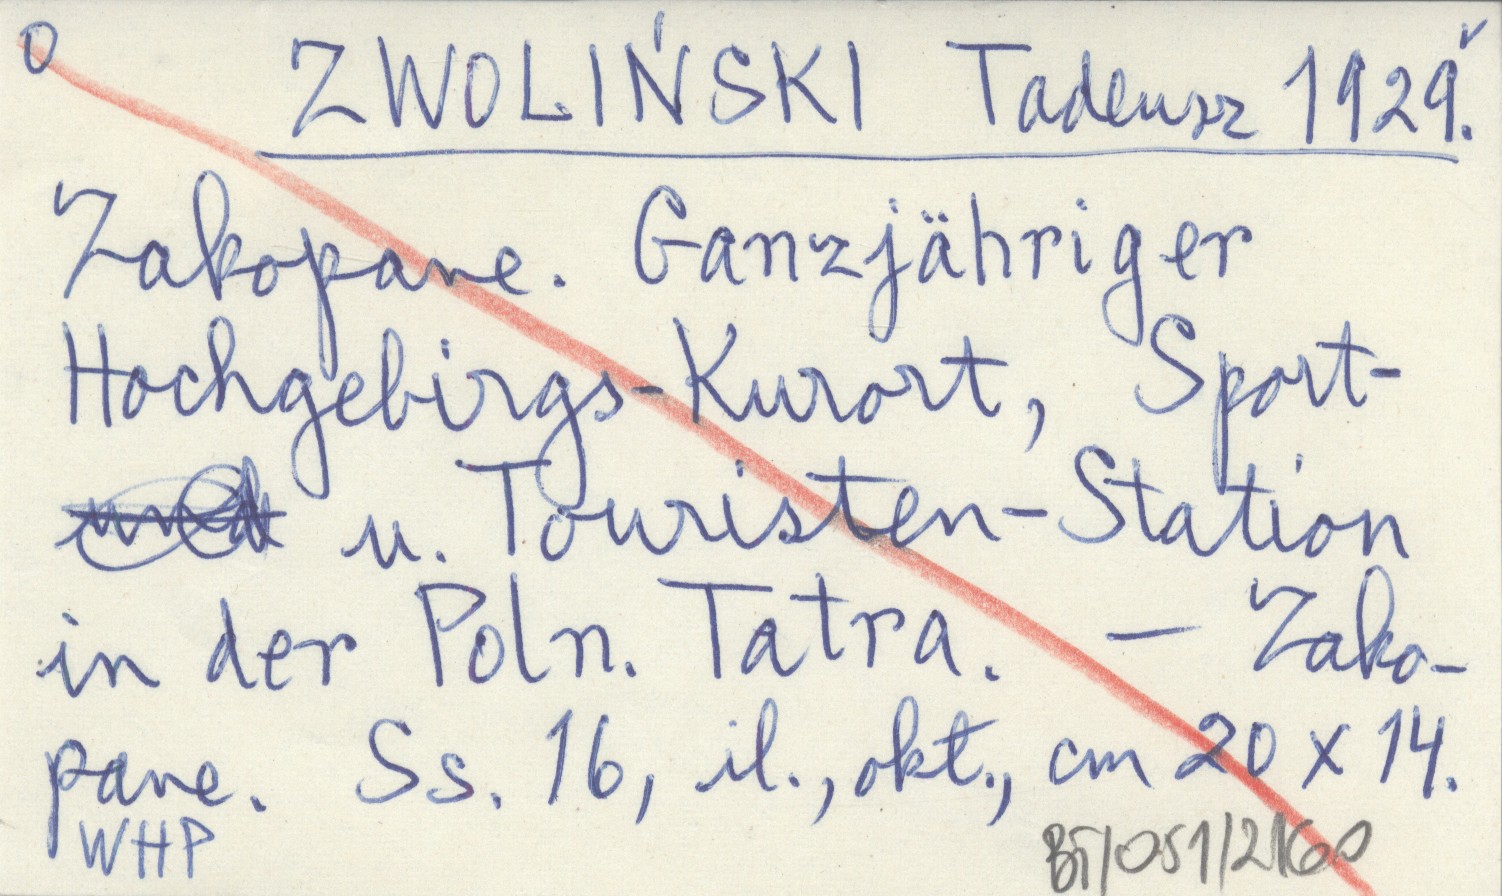 0 ZWOLIŃSKI Tadeusz 1929.
Zakopane. Ganzjähriger
Hochgebirgs-Kurort, Sport-
u. Touristen-Station
in der Poln. Tatra. — Zako-
pane. Ss. 16, il., okt., cm 20 x 14.
WHP BT/051/2160